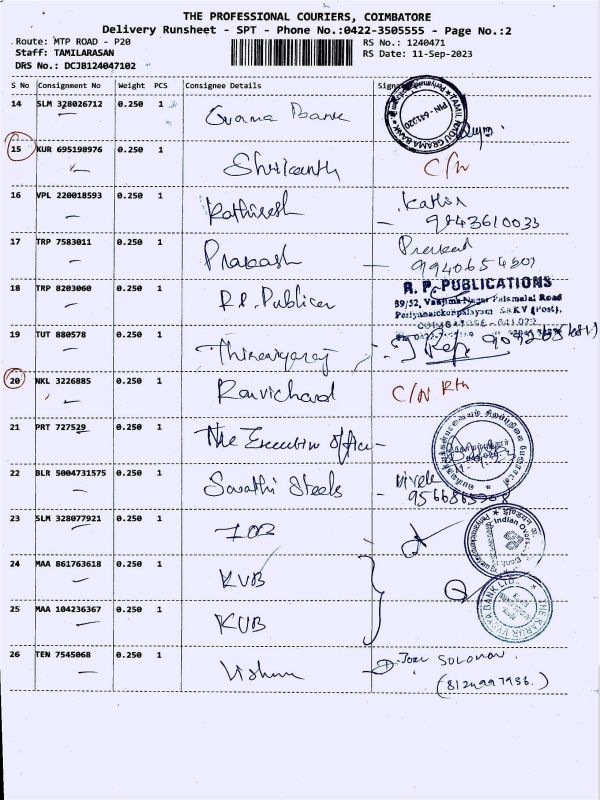 THE PROFESSIONAL COURIERS, COIMBATORE
Delivery Runsheet - SPT - Phone No.:0422-3505555 - Page No.:2
Route: MTP ROAD - P20
RS No.: 1240471
Staff: TAMILARASAN
RS Date: 11-Sep-2023
DRS No.: DCJB124047102
S No Consignment No Weight PCS Consignee Details
14 SLM 328026712 0.250 1 Grama Bank
TAMIL NADU GRAMA BANK
PIN - 641020
15 KUR 695198976 0.250 1 Shrikanth C/N
16 VPL 220018593 0.250 1 Kathiresh
9843610033
17 TRP 7583011 0.250 1 Prakash
18 TRP 8203060 0.250 1 R.P. Publicer
R. P. PUBLICATIONS
89/52, Vanjima Nagar Palamalai Road
Periyanaickenpalayam S.R.K.V (Post),
COIMBATORE - 641 020
19 TUT 880578 0.250 1 Thiravyaraj
20 NKL 3226885 0.250 1 Ravichand C/N Rtn
21 PRT 727529 0.250 1 The Executive Officer
22 BLR 5004731575 0.250 1 Sarathi Steels
23 SLM 328077921 0.250 1 IOB
Indian Overseas Bank
24 MAA 861763618 0.250 1 KVB
THE KARUR VYSYA BANK LTD.
25 MAA 104236367 0.250 1 KVB
26 TEN 7545068 0.250 1 Vishnu
SOLOMON
(8124997936.)